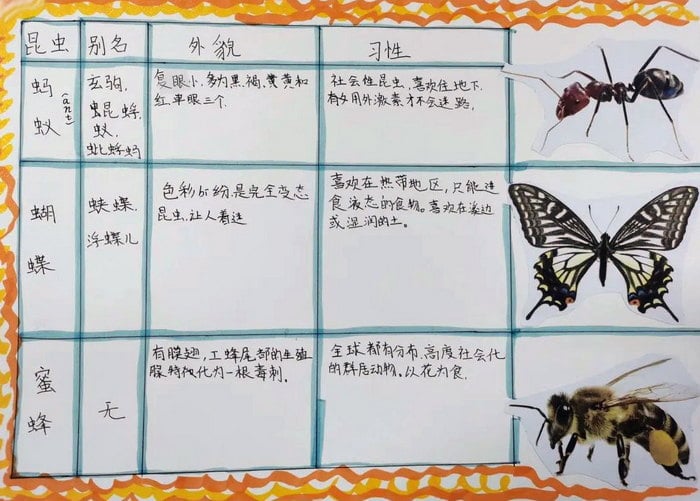 昆虫 别名 外貌 习性
蚂蚁 (ant)
玄驹,
蚍蜉,
蚁,
蚍蜉蚂
复眼小,多为黑、褐、黄和
红.单眼三个.
社会性昆虫,喜欢住地下.
有
用外激素才不会迷路,
蝴蝶
蛱蝶,
浮蝶儿
色彩缤纷,是完全变态
昆虫,让人着迷
喜欢在热带地区,只能进
食液态的食物。喜欢在溪边
或湿润的土。
蜜蜂
无
有膜翅,工蜂尾部的生殖
腺特化为一根毒刺。
全球都有分布,高度社会化
的群居动物。以花为食.